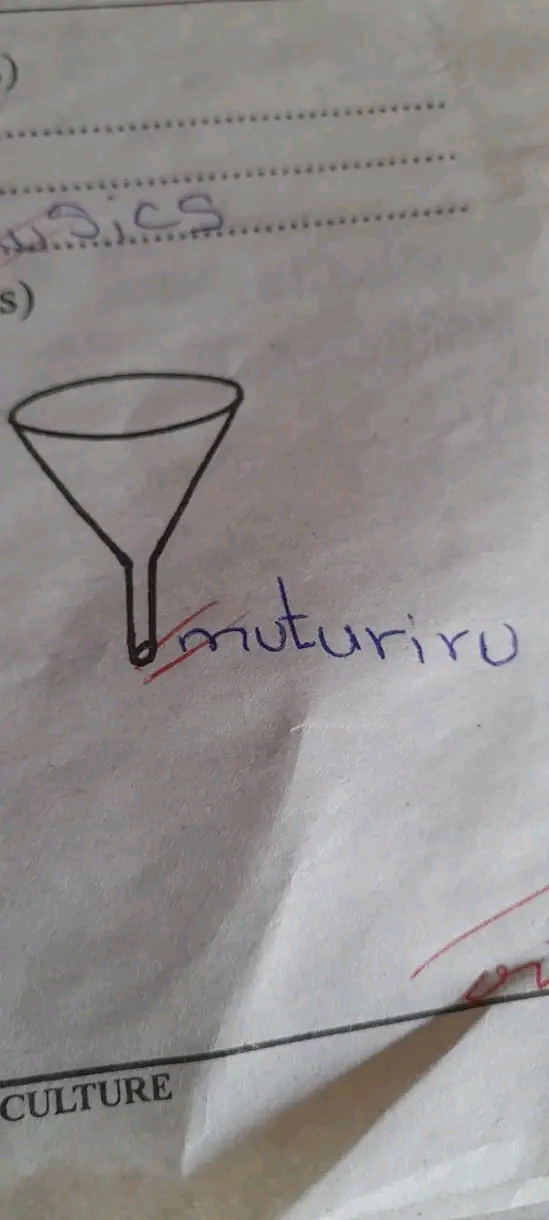 )
s)
muturiru
CULTURE